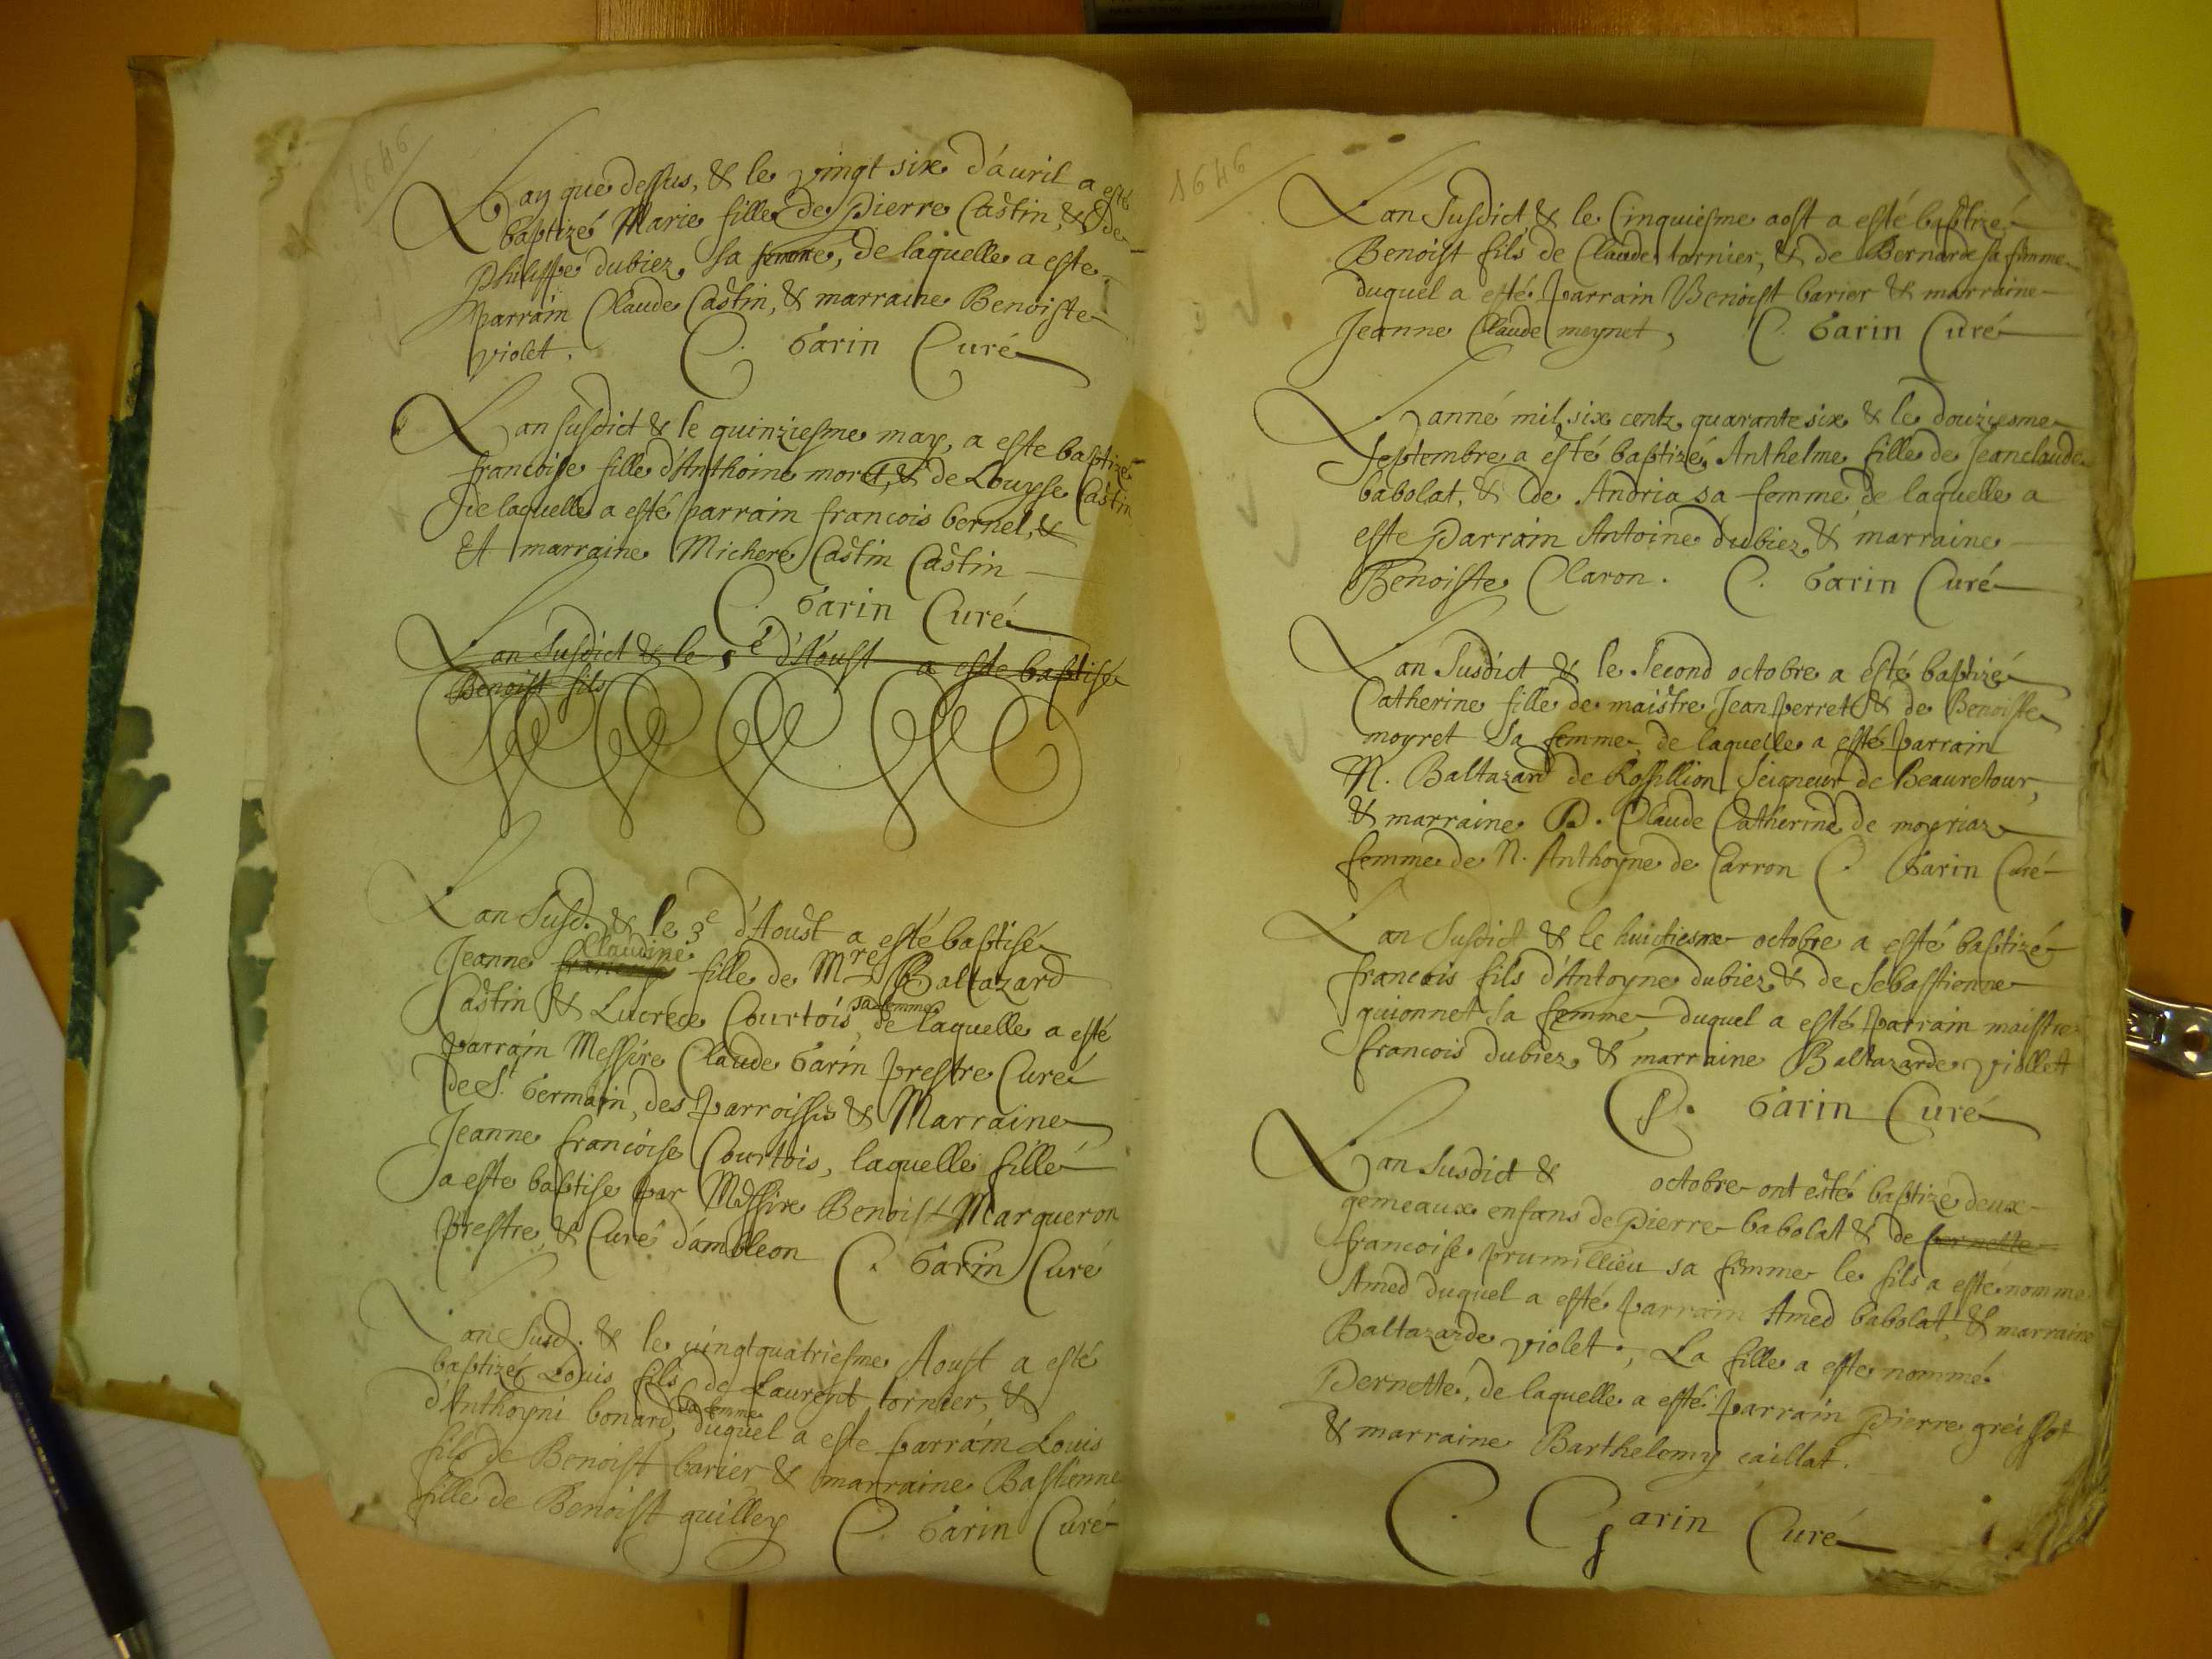 1646
Lan que dessus, & le vingt six d'auril a esté
baptizé Marie fille de Pierre Castin, & de
Philippe dubiez, sa femme, de laquelle a este
parrain Claude Castin, & marraine Benoiste
violet. C. Garin Curé
Lan susdict & le quinziesme may, a este baptizé
francoise fille d'Anthoine moret, & de Louyse Castin
de laquelle a esté parrain francois bernel, &
Et marraine Michere Castin Castin
C. Garin Curé
Lan susdict & le 5e d'Aoust a este baptise
Benoist fils
Lan susd. & le 3e d'Aoust a esté baptisé
Jeanne Claudine fille de Mre Baltazard
Castin & Lucrece Courtois sa femme, de laquelle a esté
parrain Messire Claude Garin prestre Curé
de St. Germain, des parroisses & Marraine
Jeanne francoise Courtois, laquelle fille
a este baptise par Messire Benoist Margueron
prestre, & Curé d'ambleon C. Garin Curé
Lan susd. & le vingtquatriesme Aoust a esté
baptizé Louis fils de Laurent tornier, &
d'Anthoyni bonard sa femme, duquel a este parrain Louis
fils de Benoist barier, & marraine Bastienne
fille de Benoist guilley C. Garin Curé
1646
Lan susdict & le Cinquiesme aost a esté baptizé
Benoist fils de Claude tornier, & de Bernarde sa femme
duquel a esté parrain Benoist barier & marraine
Jeanne Claude meynet, C. Garin Curé
Lanné mil six centz quarante six & le douziesme
septembre a esté baptizé Anthelme fille de Jeanclaude
babolat, & de Andria sa femme, de laquelle a
este parrain Antoine dubiez & marraine
Benoiste Claron. C. Garin Curé
Lan susdict & le second octobre a esté baptizé
Catherine fille de maistre Jean perret & de Benoiste
moyret sa femme, de laquelle a esté parrain
N. Baltazard de Rossillion Seigneur de Beauretour,
& marraine D. Claude Catherine de moyriaz
femme de N. Anthoyne de Carron C. Garin Curé
Lan susdict & le huictiesme octobre a esté baptizé
francois fils d'Antoyne dubiez & de Sebastienne
guionnet sa femme, duquel a esté parrain maistre
francois dubiez & marraine Baltazarde viollet
C. Garin Curé
Lan susdict & octobre ont esté baptize deux
gemeaux enfans de pierre babolat & de pernette
francoise prumillieu sa femme le fils a esté nomme
Amed duquel a esté parrain Amed babolat, & marraine
Baltazarde violet; La fille a este nommé
Pernette, de laquelle a esté parrain pierre greissot
& marraine Barthelemy caillat.
C. Garin Curé